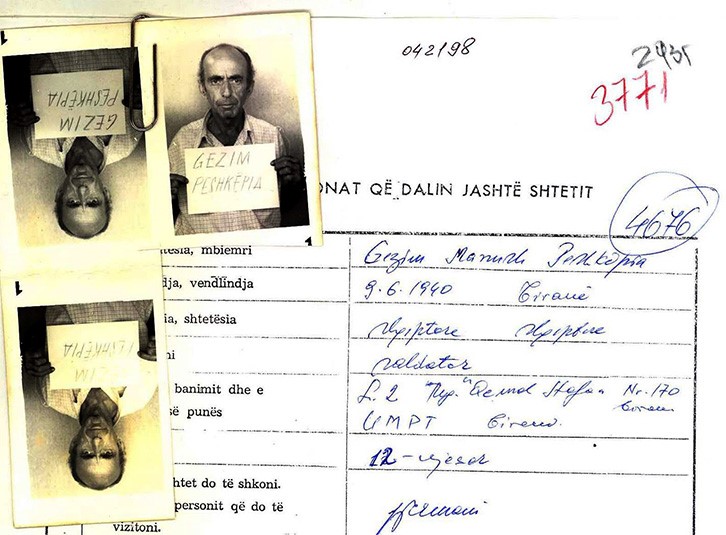 042198
2435
3771
GEZIM
PESHKËPIA
GEZIM
PESHKËPIA
ONAT QË DALIN JASHTË SHTETIT
4676
tësia, mbiemri
Gezim Manush Peshkëpia
dja, vendlindja
9.6.1940 Tiranë
ia, shtetësia
shqiptare shqiptare
ni
saldator
banimit dhe e
së punës
L. 2 "Rrug." Qemal Stafa Nr. 170
Tirane
UMPT Tirane.
12-vjeçar
htet do të shkoni.
personit që do të
vizitoni.
gjermani
PESHKËPIA
GEZIM